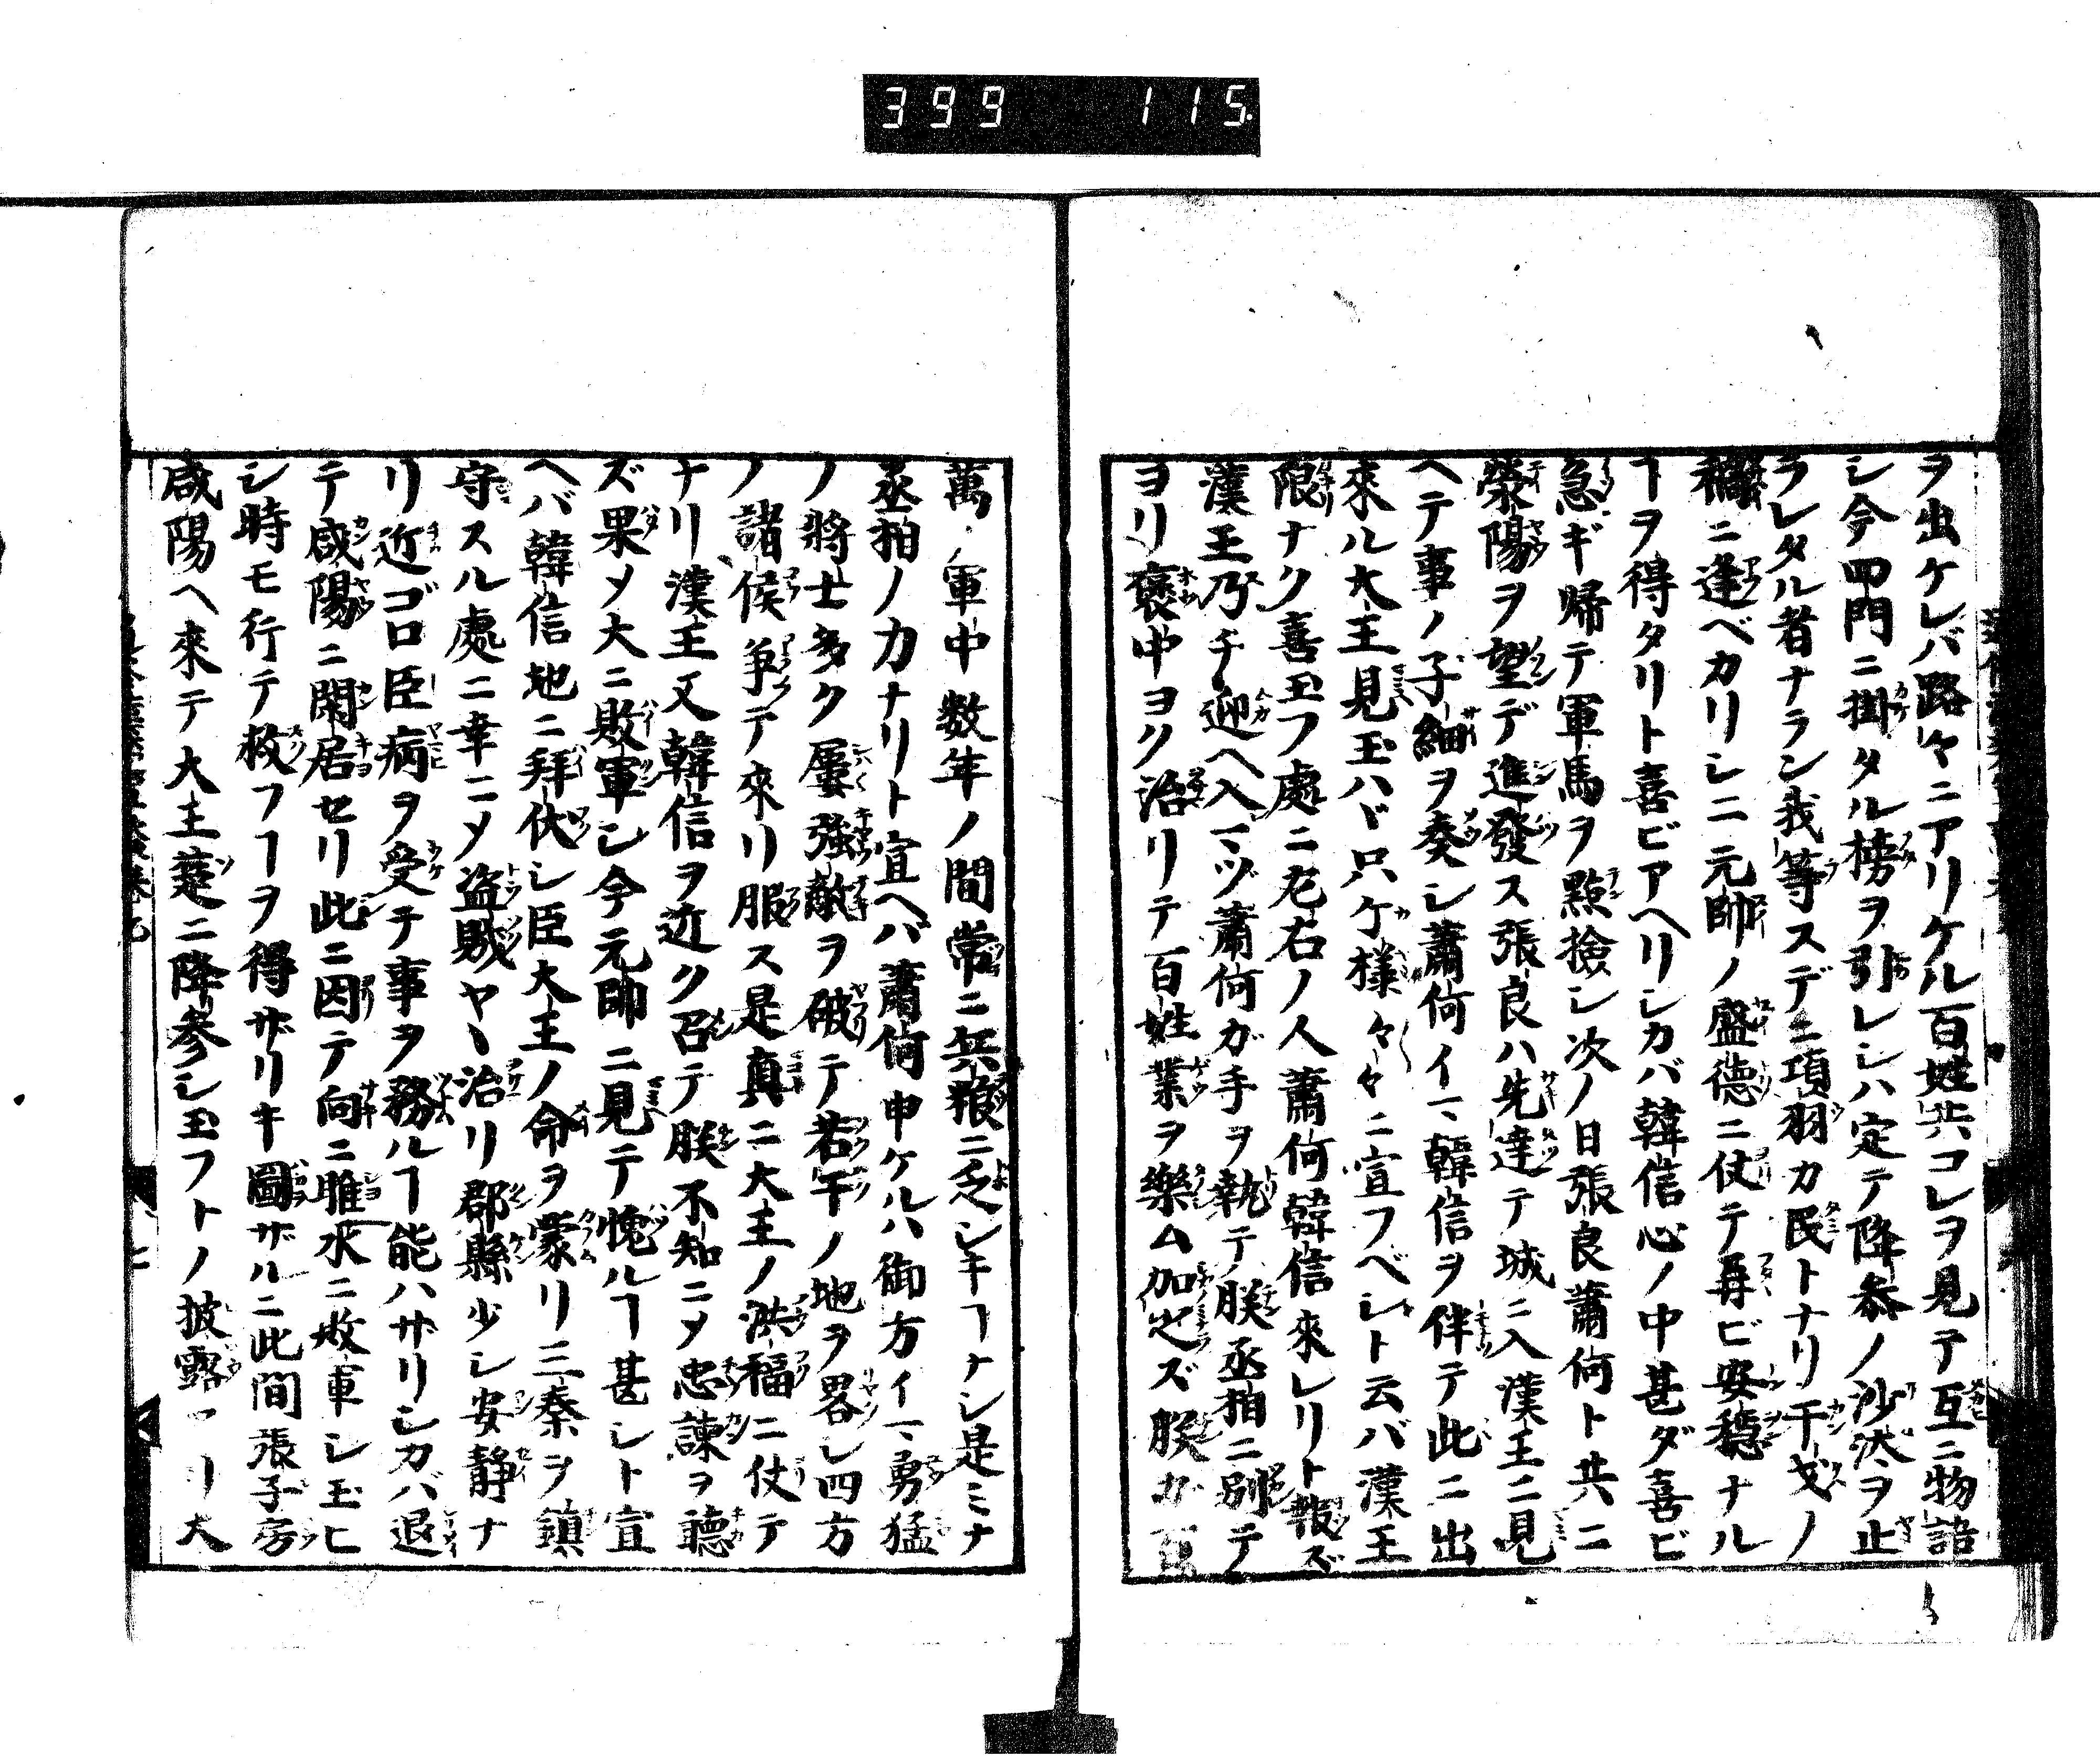 399 115
ヲ出ケレバ路々ニアリケル百姓共コレヲ見テ互ニ物語
シ今四門ニ掛タル榜ヲ引レシハ定テ降参ノ沙汰ヲ止
ラレタル者ナラン我等スデニ項羽カ民トナリ干戈ノ
禍ニ逢ベカリシニ元帥ノ盛德ニ仗テ再ビ安穏ナル
ヿヲ得タリト喜ビアヘリシカバ韓信心ノ中甚ダ喜ビ
急ギ帰テ軍馬ヲ點撿シ次ノ日張良蕭何ト共ニ
滎陽ヲ望デ進發ス張良ハ先達テ城ニ入漢王ニ見
ヘテ事ノ子細ヲ奏シ蕭何イマ韓信ヲ伴テ此ニ出
來ル大王見玉ハヾ只ケ様々々ニ宣フベシト云バ漢王
限ナク喜玉フ處ニ左右ノ人蕭何韓信來レリト報ズ
漢王乃チ迎ヘ入マヅ蕭何ガ手ヲ執テ朕丞相ニ別テ
ヨリ褒中ヨク治リテ百姓業ヲ樂ム加之ズ朕カ百
萬ノ軍中数年ノ間常ニ兵粮ニ乏シキヿナシ是ミナ
丞相ノ力ナリト宣ヘバ蕭何申ケルハ御方イマ勇猛
ノ將士多ク屡強敵ヲ破テ若干ノ地ヲ畧シ四方
ノ諸侯争テ來リ服ス是真ニ大王ノ洪福ニ仗テ
ナリ漢王又韓信ヲ近ク召テ朕不知ニメ忠諫ヲ聽
ズ果メ大ニ敗軍シ今元帥ニ見テ愧ルヿ甚シト宣
ヘバ韓信地ニ拜伏シ臣大王ノ命ヲ蒙リ三秦ヲ鎮
守スル處ニ幸ニメ盗賊ヤヽ治リ郡縣少シ安静ナ
リ近ゴロ臣病ヲ受テ事ヲ務ルヿ能ハザリシカバ退
テ咸陽ニ閑居セリ此ニ因テ向ニ睢水ニ敗軍シ玉ヒ
シ時モ行テ救フヿヲ得ザリキ圖ザルニ此間張子房
咸陽ヘ來テ大王楚ニ降参シ玉フトノ披露アリ大